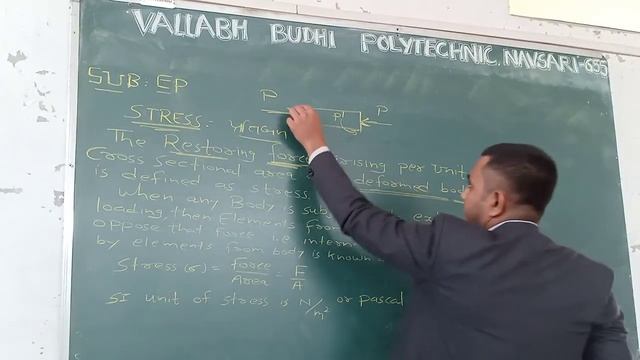 VALLABH BUDHI POLYTECHNIC, NAVSARI-
SUB: EP
P
P P
STRESS:-
The Restoring force arising per Unit
Cross Sectional area deformed body
is defined as stress.
When any Body is
loading, then Elements from
oppose that force i.e
by elements from body is known
Stress (σ) = force/Area = F/A
SI unit of stress is N/m² or pascal